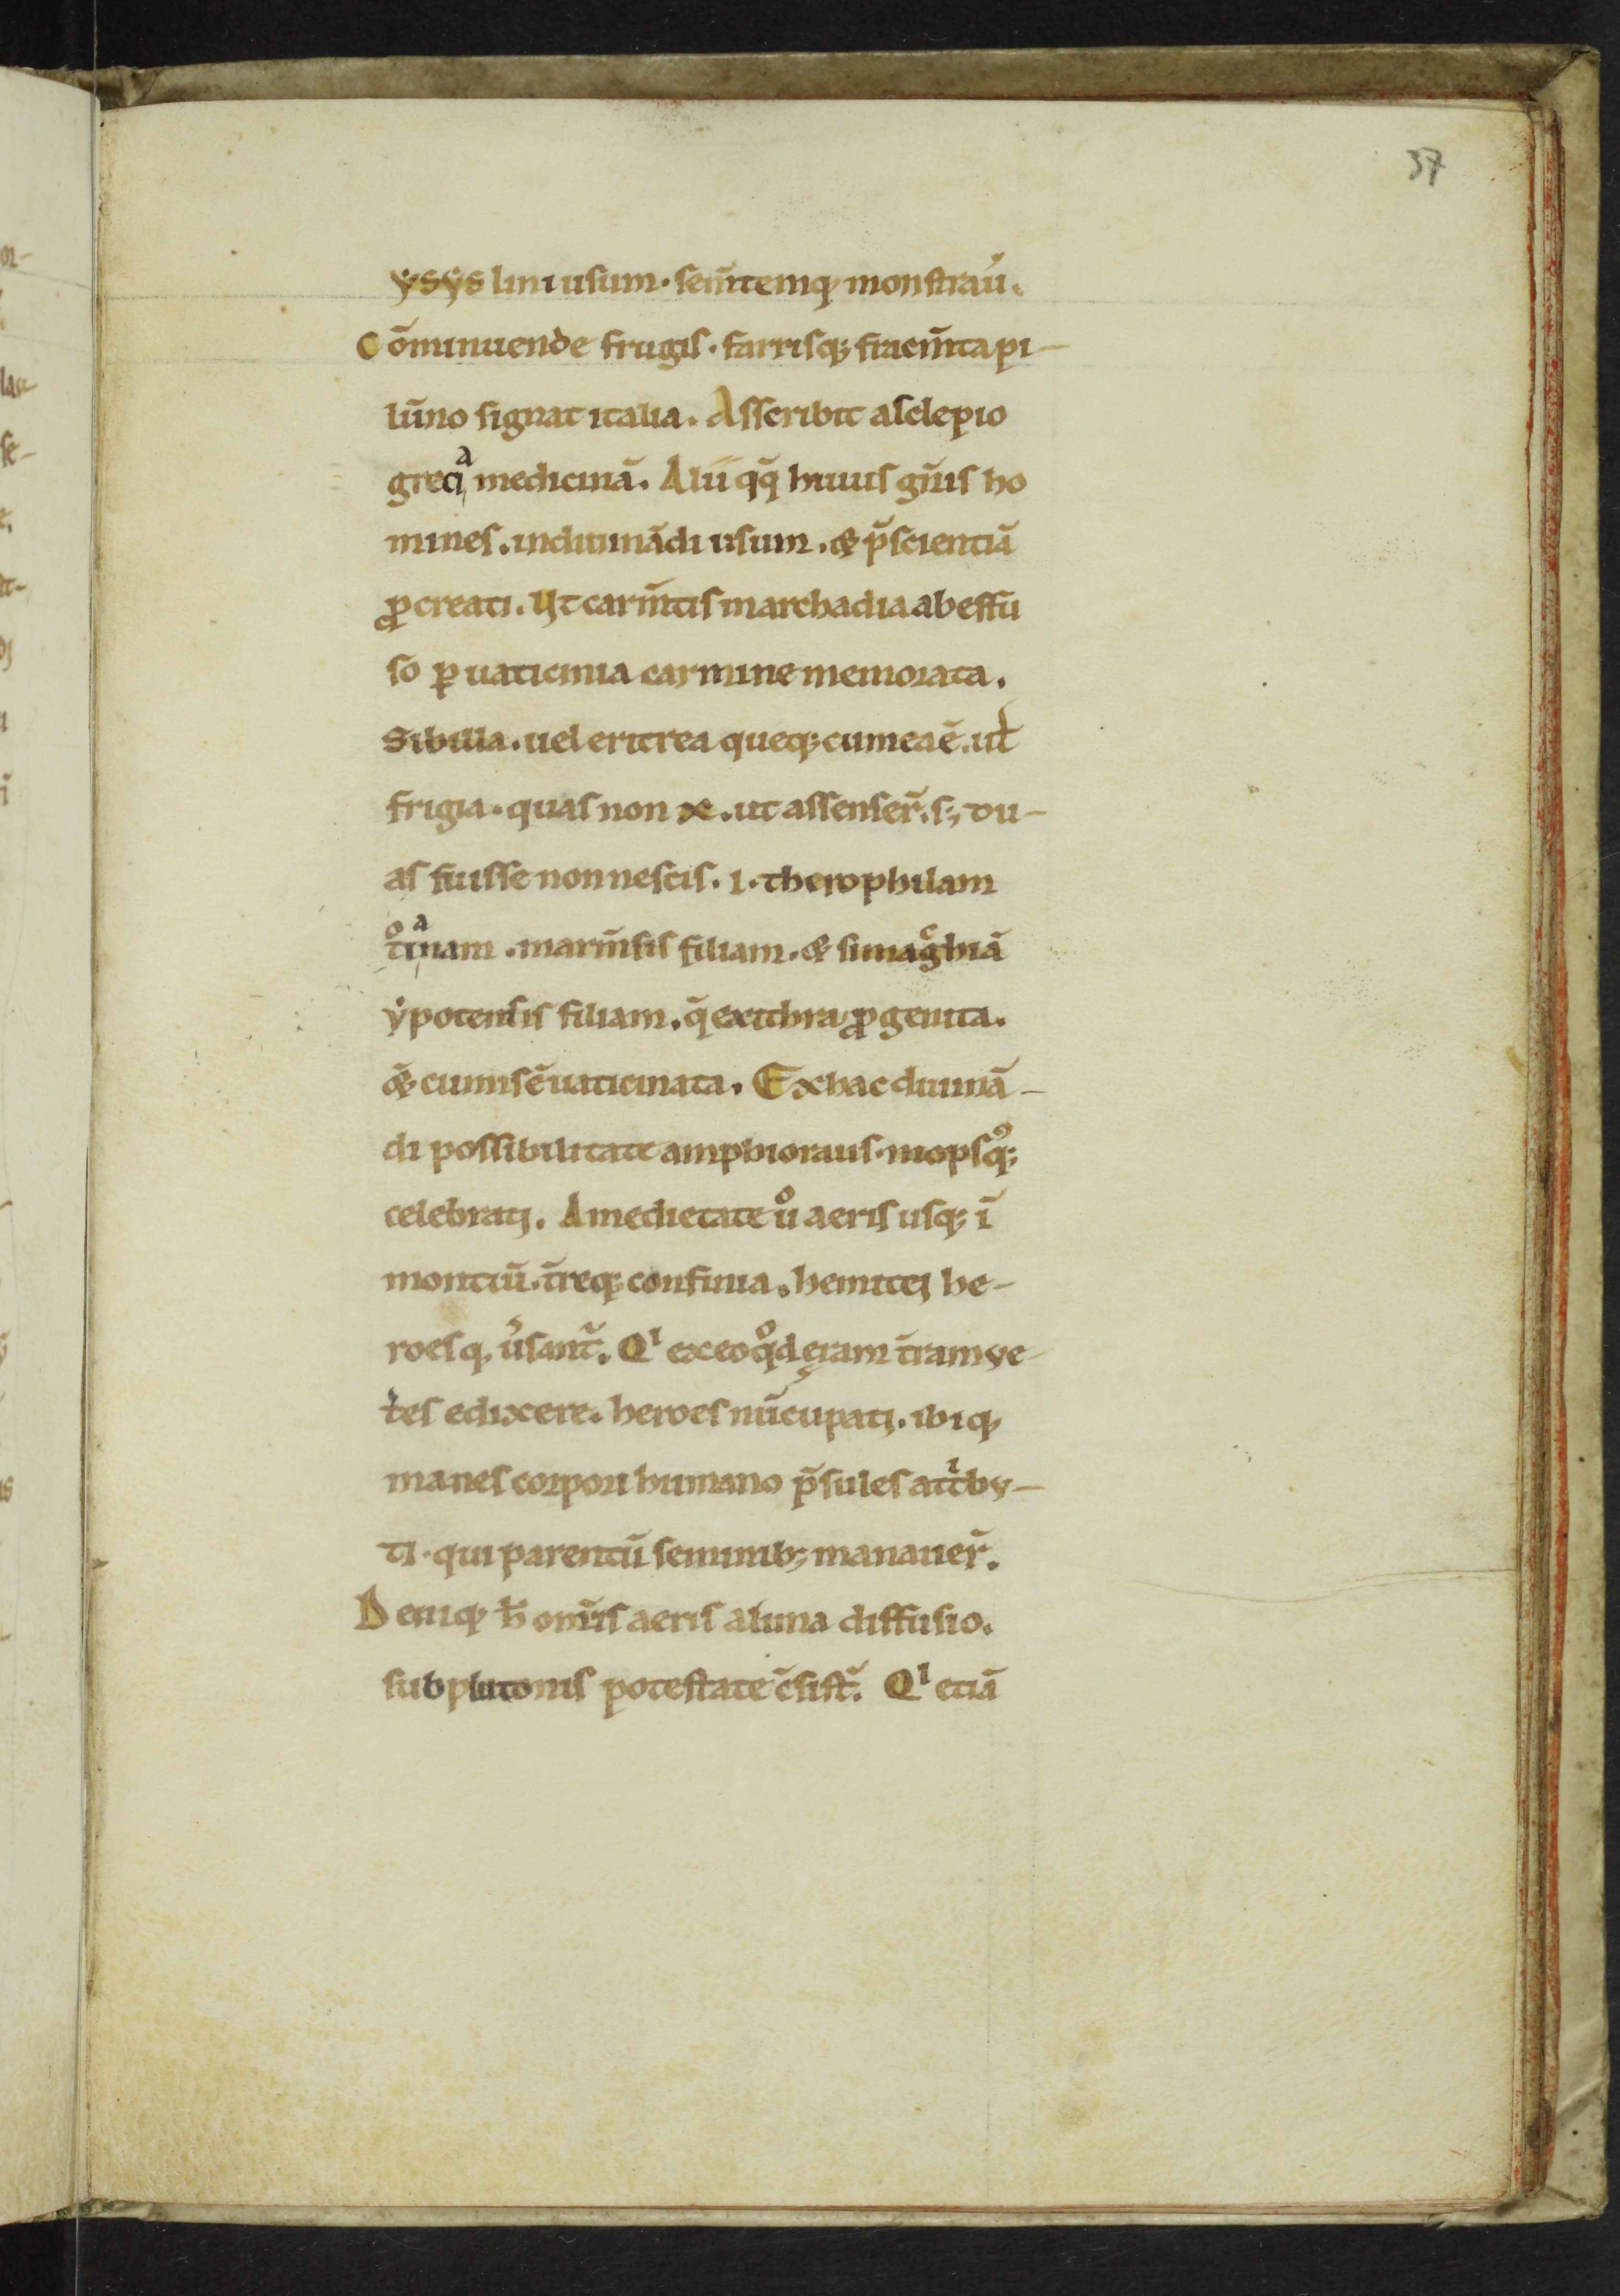 37
ysys lini usum. sem̄temq; monstrau͛.
Cōminuende frugis. farrisq; fracm̄ta pi-
lūno signat italia. Asscribit asclepio
grecia medicinā. Alii qq̄ huius gn̄is ho
mines. in diuinādi usum. & p̄scientiā
ꝓcreati. Ut carm̄tis marchadia ab effu
so ꝑ uaticinia carmine memorata.
Sibilla. uel eritrea queq; cumea ē. ul̵
frigia. quas non x. ut assenser̄. s; du-
as fuisse non nescis. i. therophilam
troianam. marm̄sis filiam. & simagͨhiā
ẏpotensis filiam. q̄ exithra ꝓgenita.
q̄ & cumis ē uaticinata. Ex hac diuinā-
di possibilitate amphioraus. mopsꝰq;
celebrati. A medietate uͦ aeris usq; ī
montiū. t̄req; confinia. hemitei he-
roesq; u͛sant᷑. Qⁱ ex eo qͦd eram t̄ram ve-
t͛es edixere. heroes nūcupati. ibiq;
manes corpori humano p̄sules attⁱby-
ti. qui parentū seminib; manauer̄.
Deniq; h̄ om̄is aeris a luna diffusio.
sub plutonis potestate c̄sist᷑. Qⁱ etiā